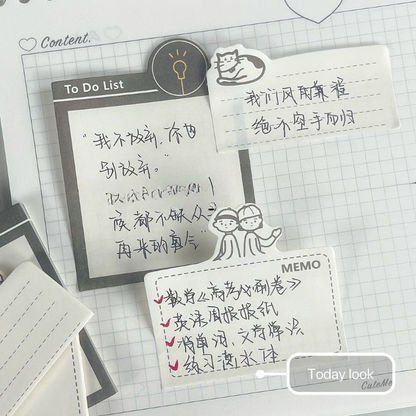 Content.
To Do List
"我不放弃,你也
别放弃。"
候都不缺从
再来的勇气"
我们风雨兼程
绝不空手而归
MEMO
数学《高考必刷卷》
英语周报报纸
背单词,文言解识
练习衡水体
Today look
CuteMe